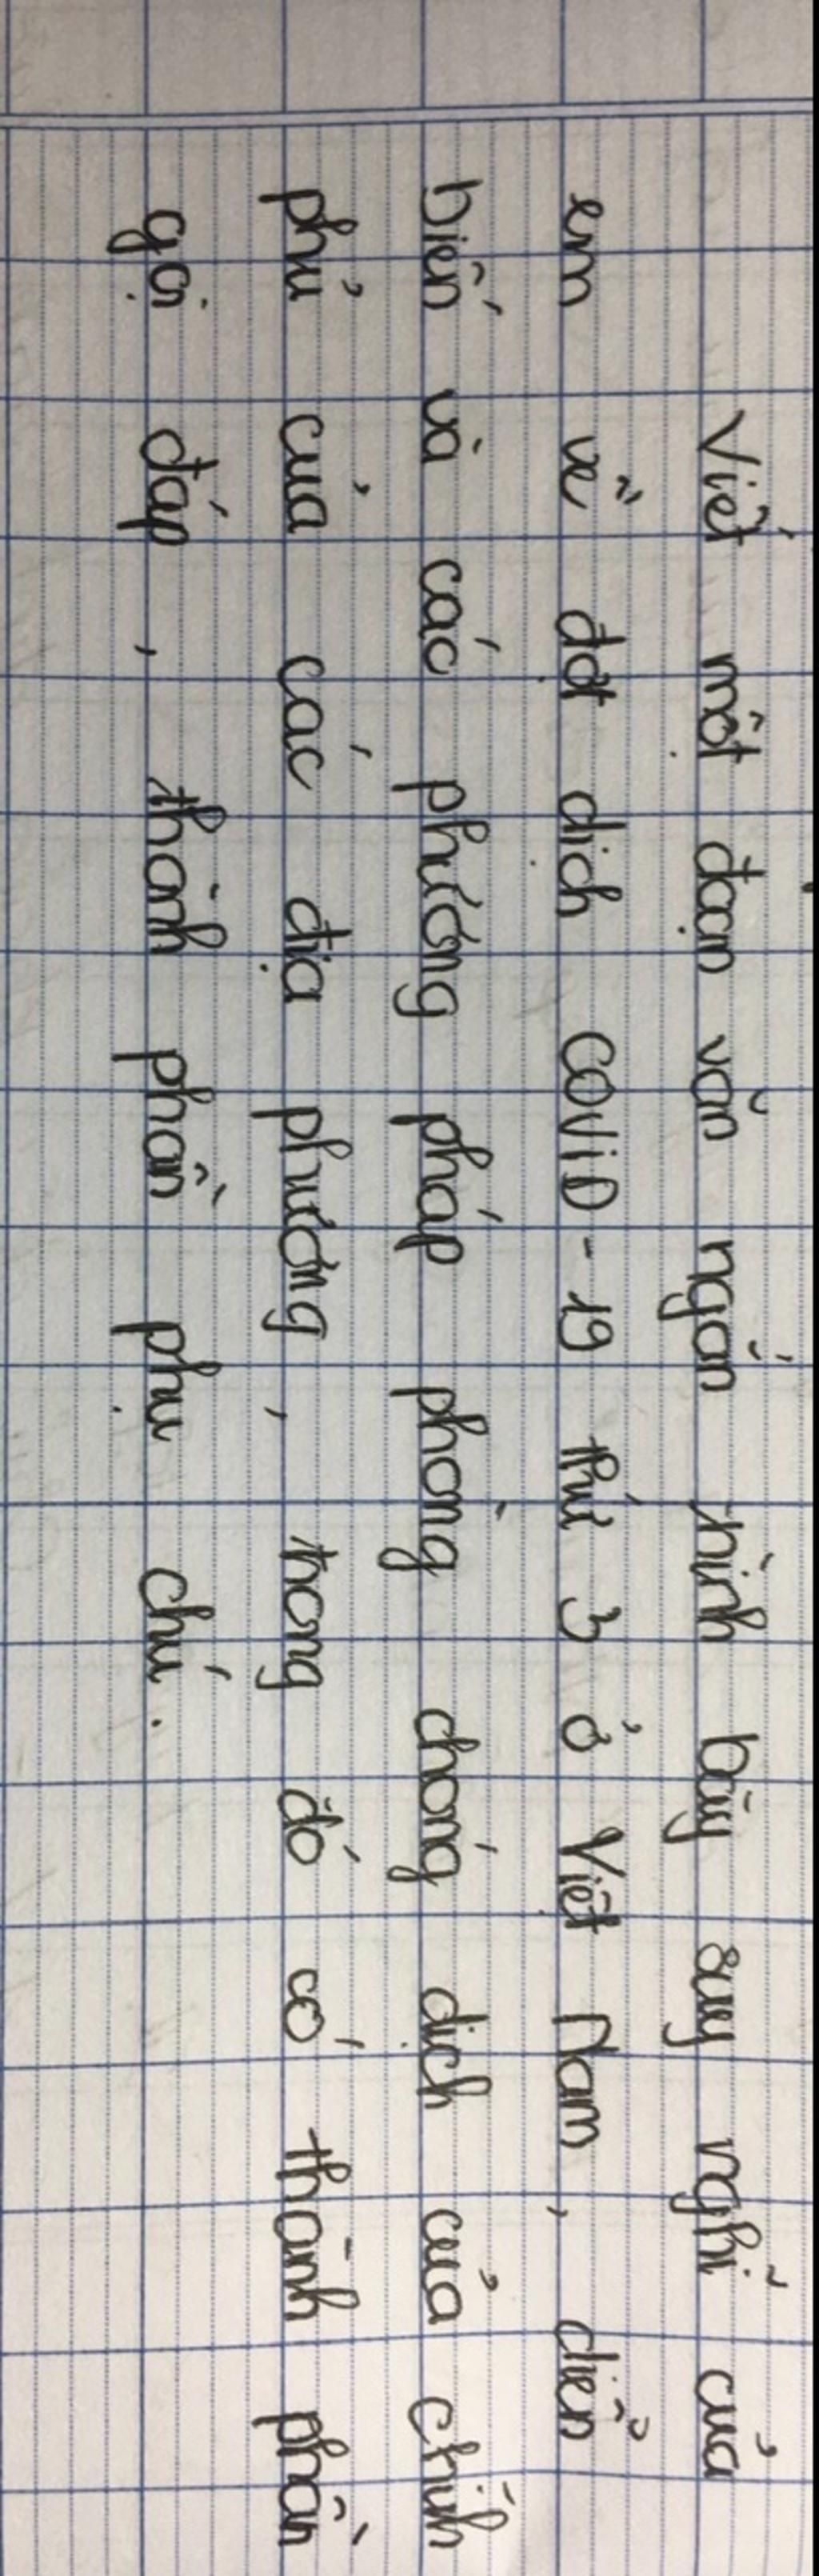 Viết một đoạn văn ngắn trình bày suy nghĩ của
em về đợt dịch COVID-19 thứ 3 ở Việt Nam, diễn
biến và các phương pháp phòng chống dịch của chính
phủ của các địa phương, trong đó có thành phần
gọi đáp, thành phần phụ chú.